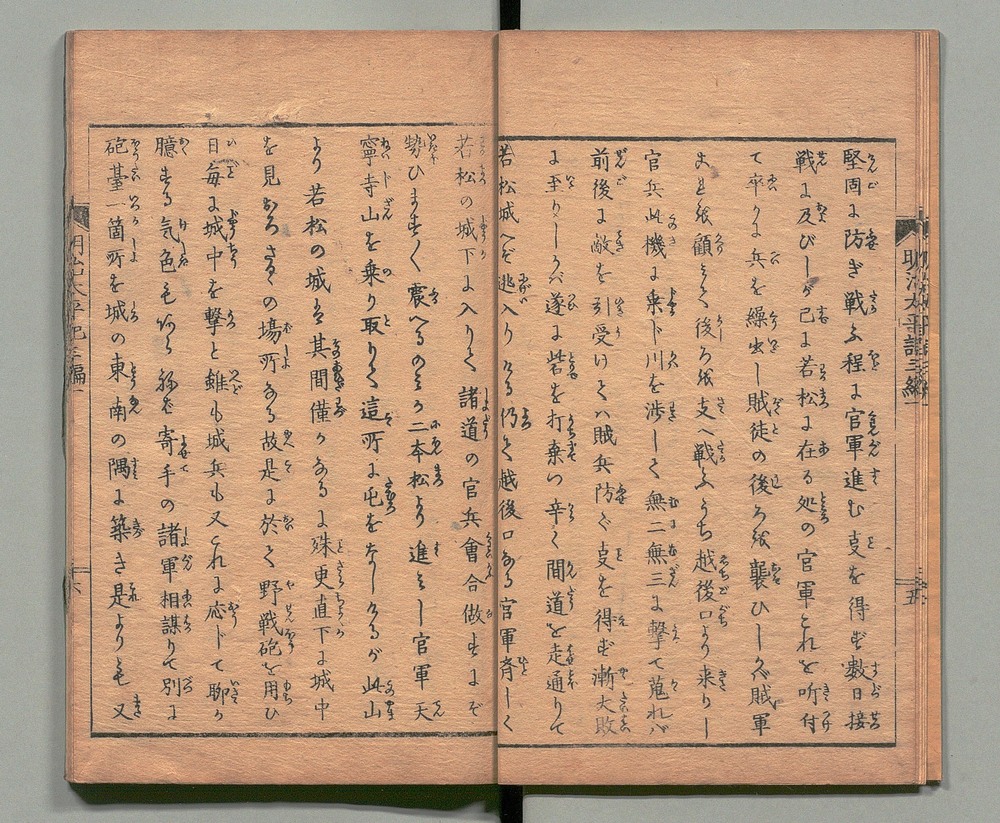 堅固に防ぎ戦ふ程に官軍進む支を得ず数日接
戦に及びしが已に若松に在る処の官軍これを听付
て卒かに兵を繰出し賊徒の後ろを襲ひしかば賊軍
これを顧みて後ろを支へ戦ふうち越後口より来りし
官兵此機に乗じ川を渉して無二無三に撃て蒐れバ
前後に敵を引受けてハ賊兵防ぐ支を得ず漸大敗
に至りしかバ遂に砦を打棄て辛く間道を走通りて
若松城へぞ逃入りける仍て越後口なる官軍斉しく
若松の城下に入りて諸道の官兵會合做すにぞ
勢ひますます震へるのミか二本松より進ミし官軍天
寧寺山を乗り取りて這所に屯をなしけるが此山
より若松の城ハ其間僅かなるに殊更直下に城中
を見おろさるゝ場所なる故是に於て野戦砲を用ひ
日毎に城中を撃と雖も城兵も又これに応じて聊か
臆する気色も寄手の諸軍相謀りて別に
砲臺一箇所を城の東南の隅に築き是よりも又
明治太平記三編
五
明治太平記三編
六